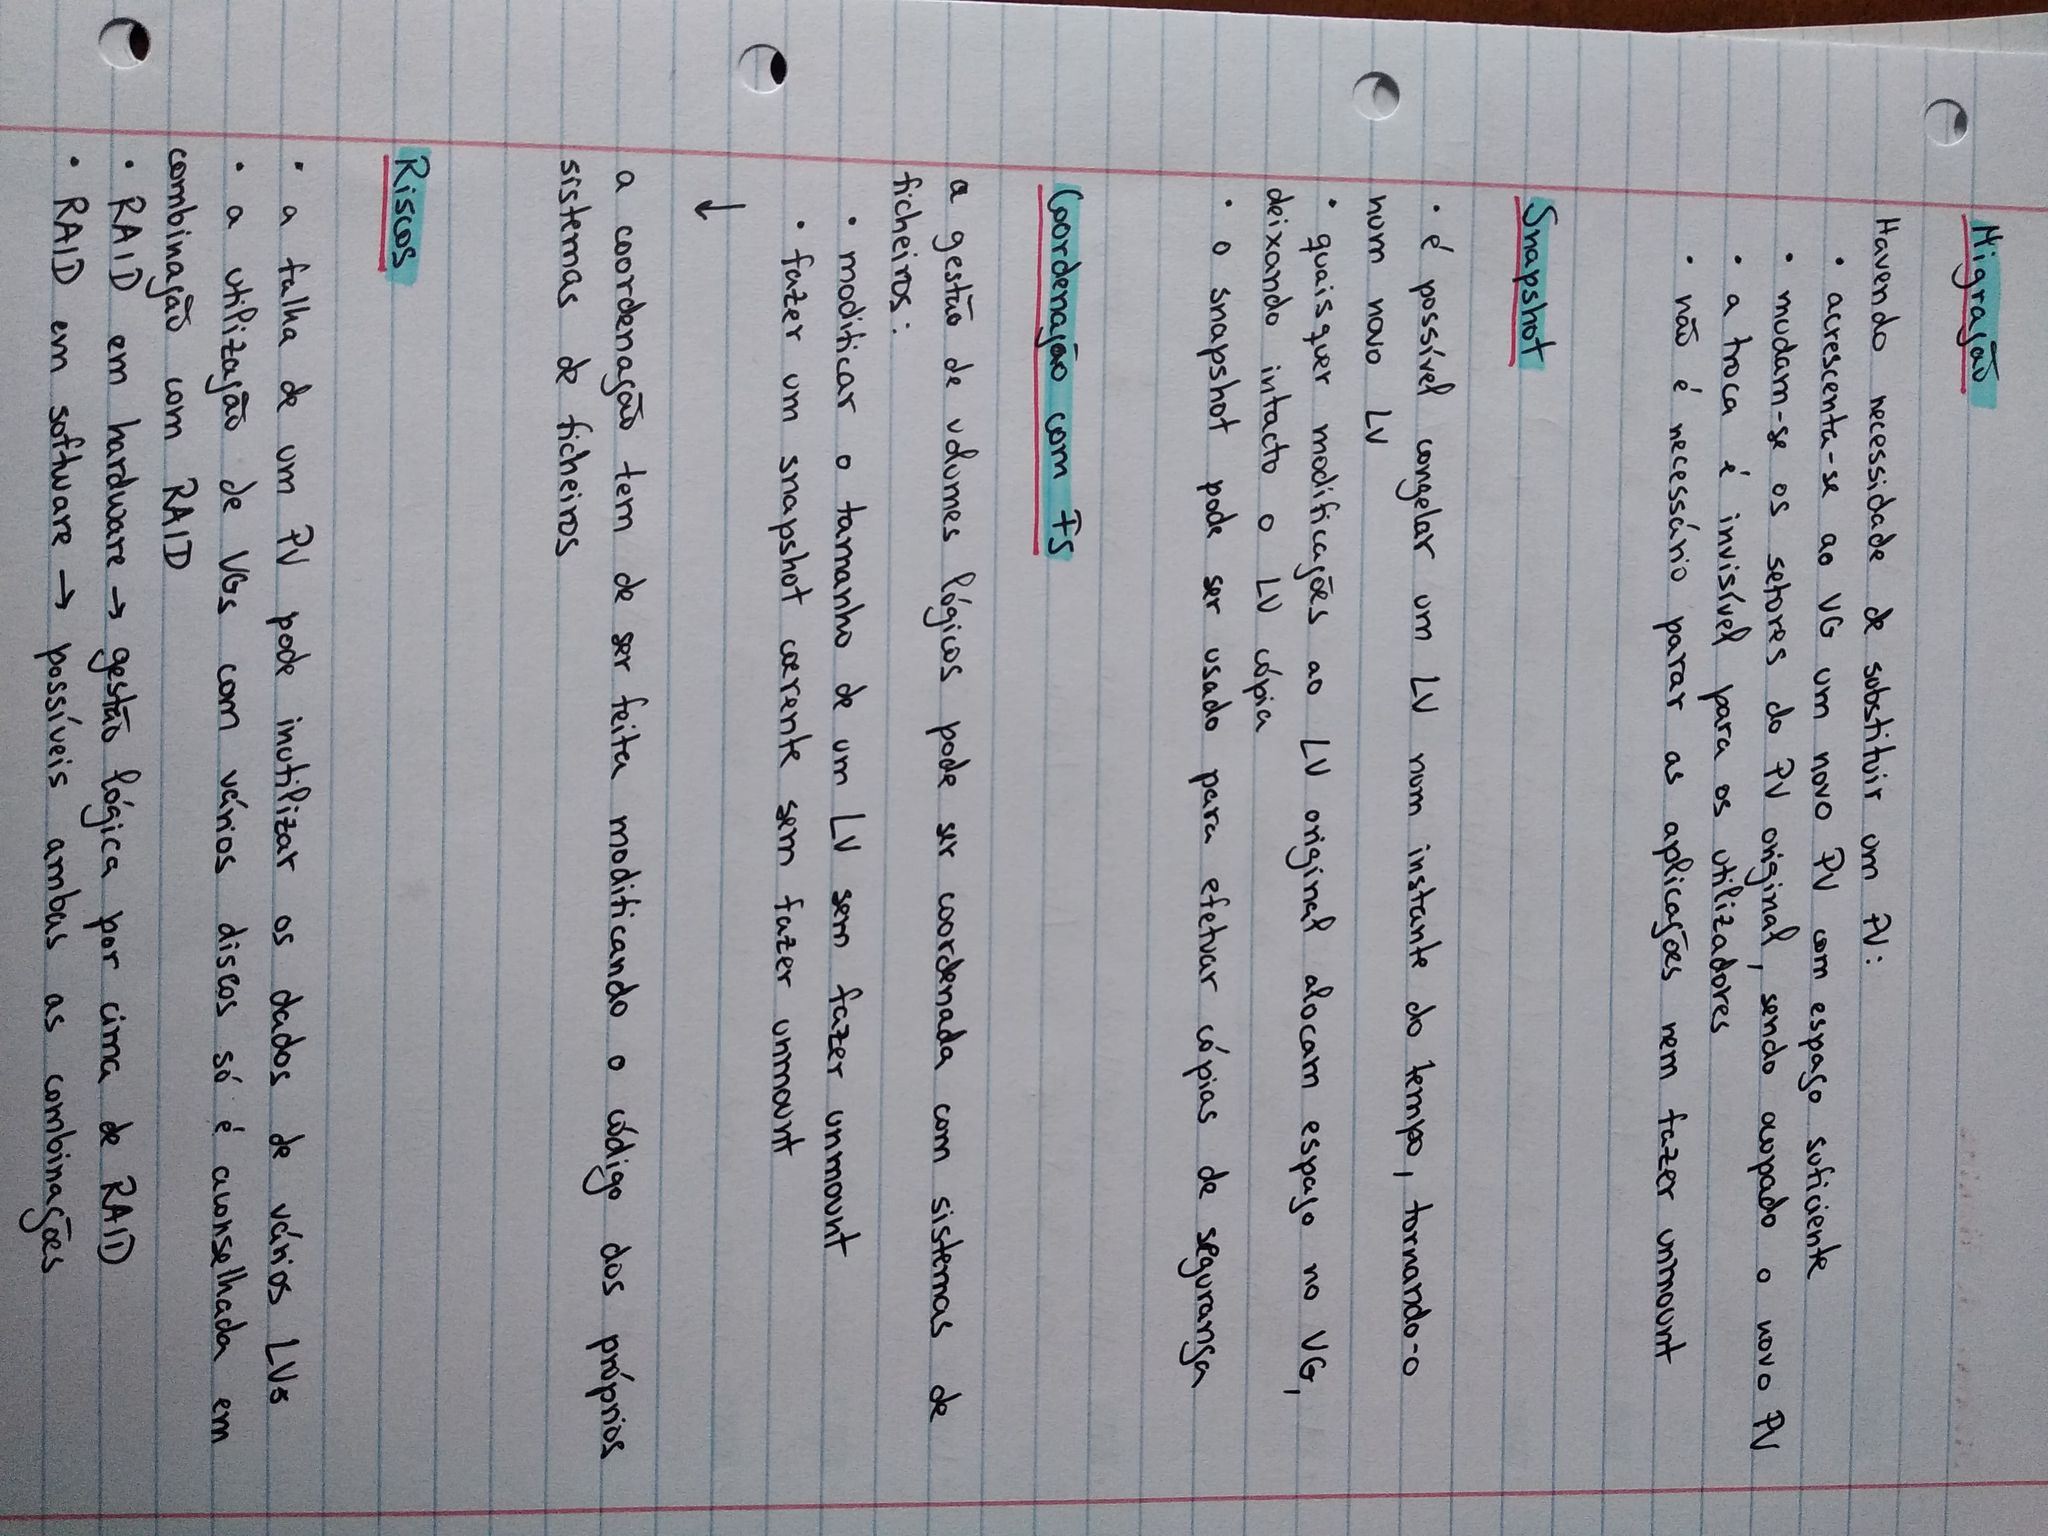 Migração
Havendo necessidade de substituir um PV:
• acrescenta-se ao VG um novo PV com espaço suficiente
• mudam-se os setores do PV original, sendo ocupado o novo PV
• a troca é invisível para os utilizadores
• não é necessário parar as aplicações nem fazer unmount
Snapshot
• é possível congelar um LV num instante do tempo, tornando-o
num novo LV
• quaisquer modificações ao LV original alocam espaço no VG,
deixando intacto o LV cópia
• o snapshot pode ser usado para efetuar cópias de segurança
Coordenação com FS
a gestão de volumes lógicos pode ser coordenada com sistemas de
ficheiros:
• modificar o tamanho de um LV sem fazer unmount
• fazer um snapshot coerente sem fazer unmount
↓
a coordenação tem de ser feita modificando o código dos próprios
sistemas de ficheiros
Riscos
• a falha de um PV pode inutilizar os dados de vários LVs
• a utilização de VGs com vários discos só é aconselhada em
combinação com RAID
• RAID em hardware → gestão lógica por cima de RAID
• RAID em software → possíveis ambas as combinações